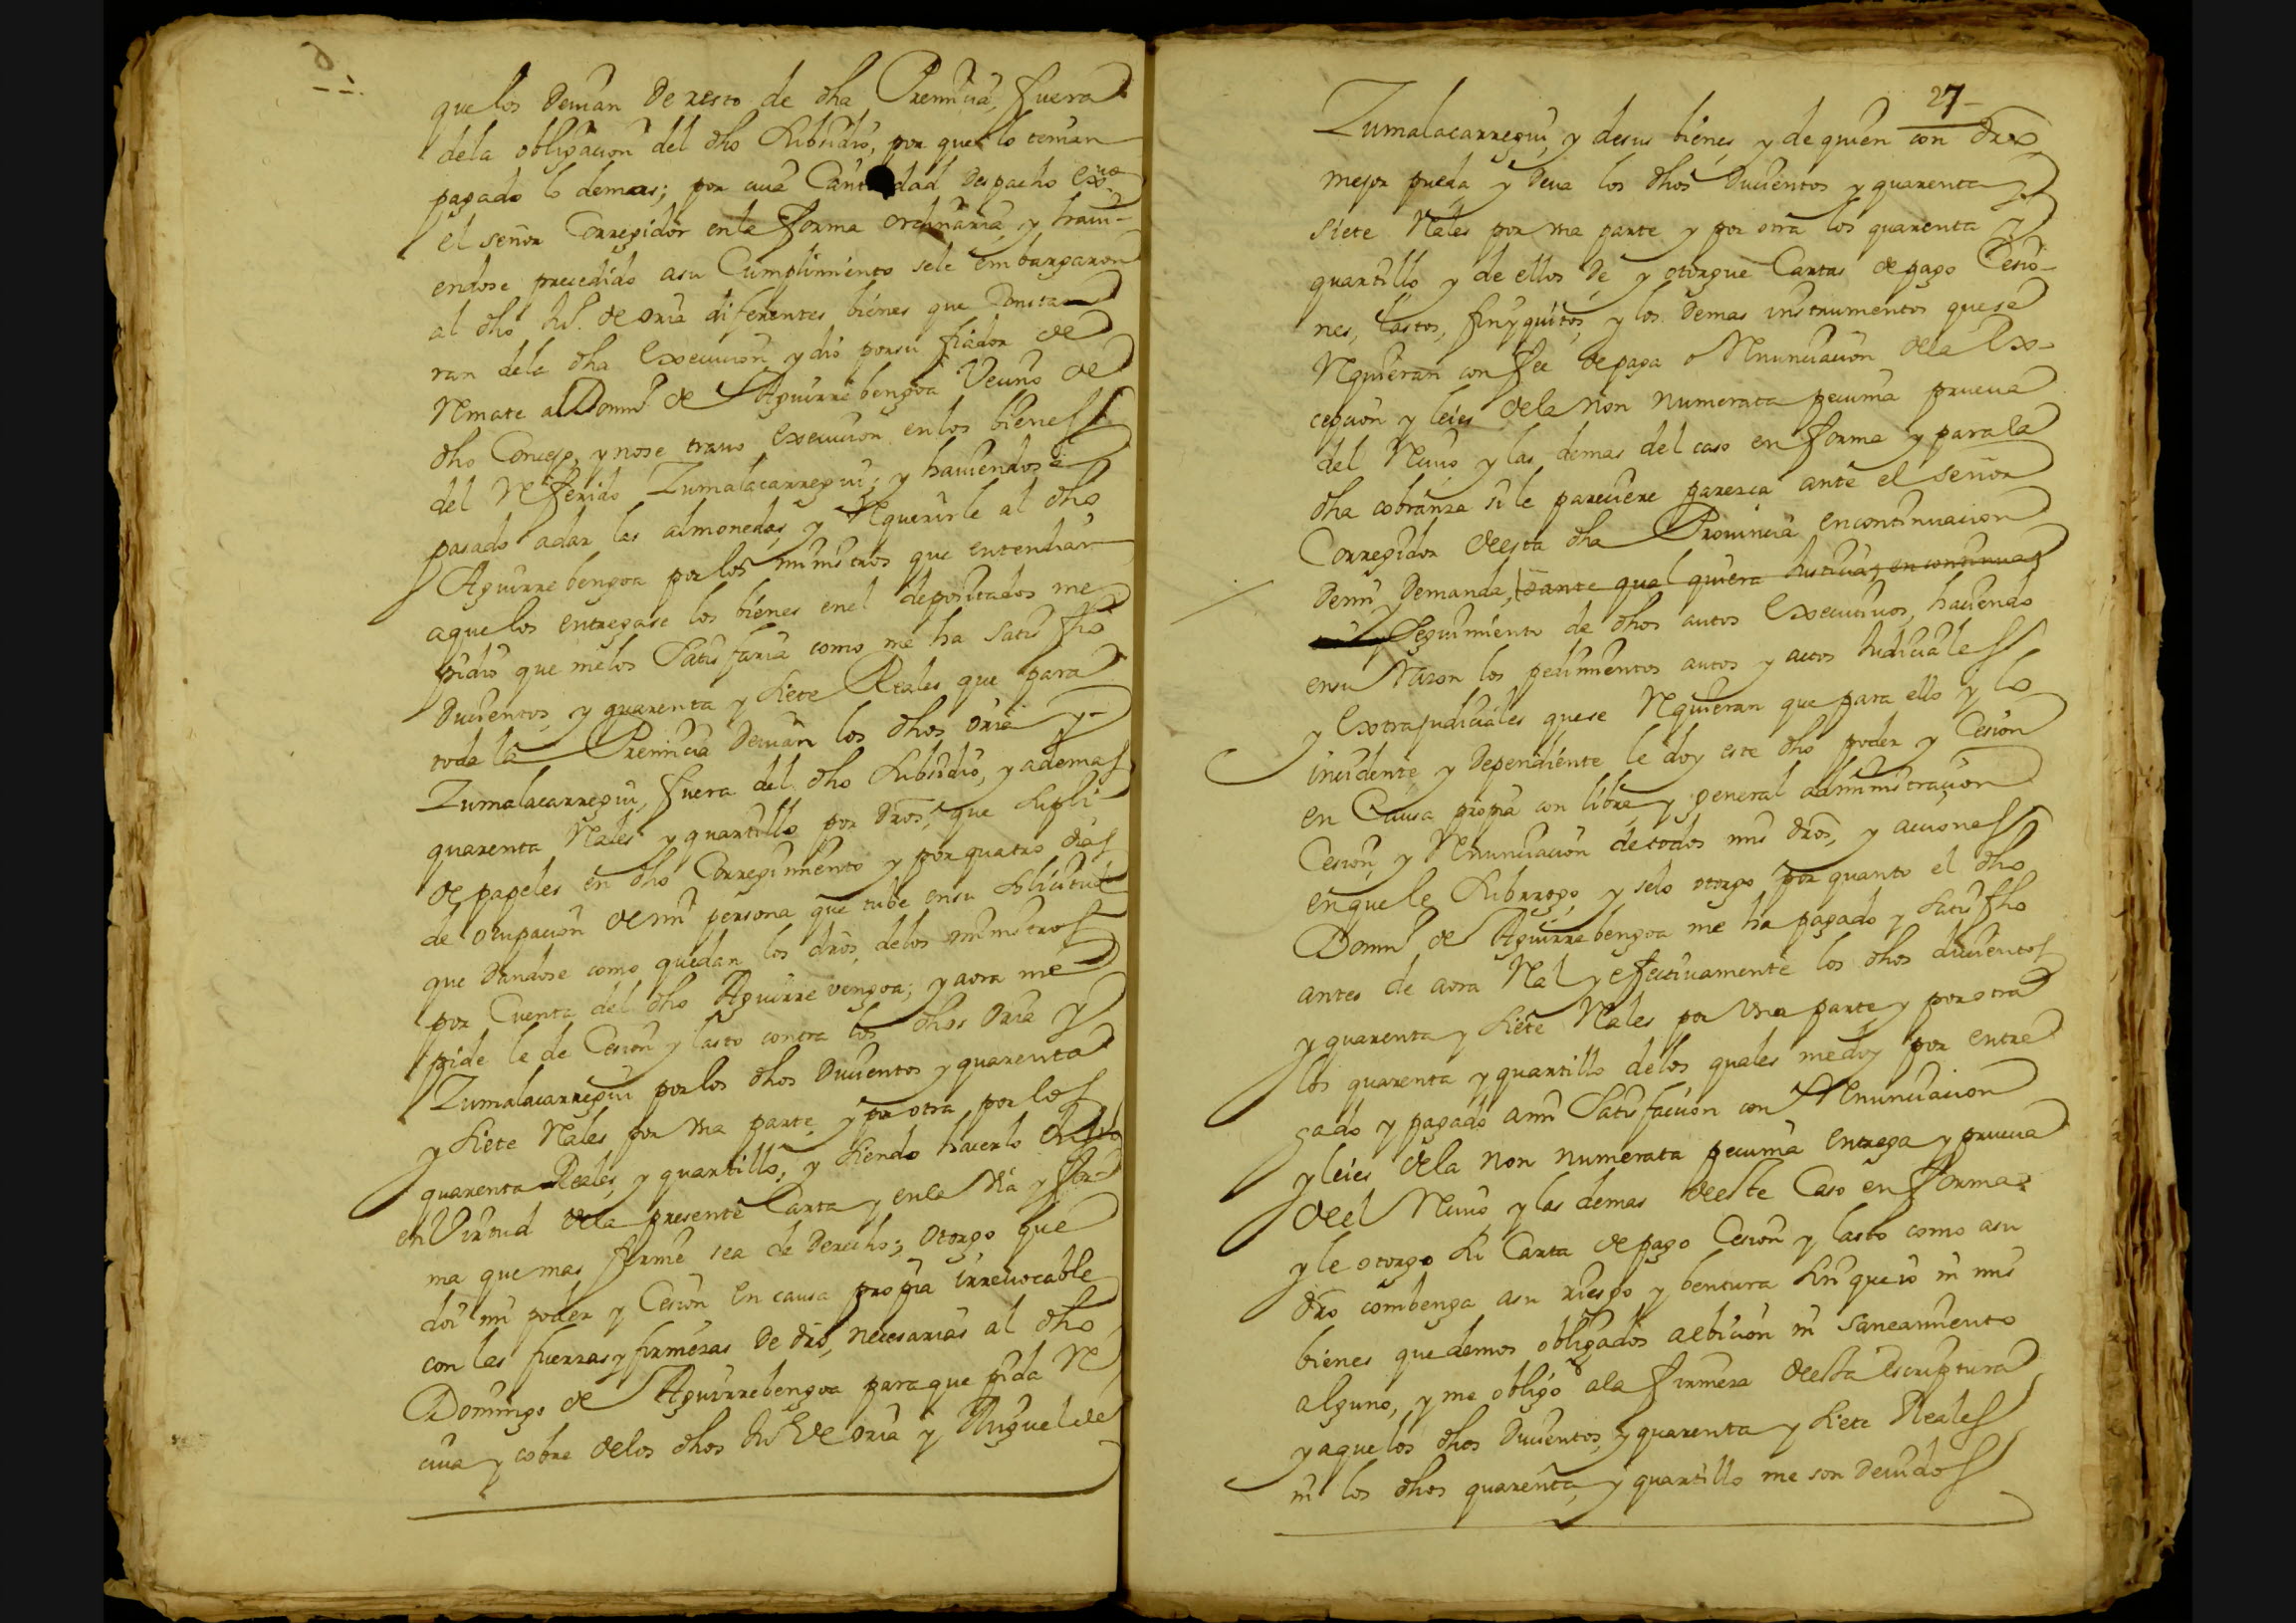 que los devian de resto de dha Premicia, fuera
dela obligacion del dho subsidio, por que lo tenian
pagado lo demas; por cuia Cantidad despacho exon
el señor Corregidor enla forma ordinaria, y havi-
endose precedido asu Cumplimiento sele embargaron
al dho de oria diferentes bienes que Consta
ran dela dha execucion, y dio por su fiador de
Remate a Domo de Aguirrebengoa Vecino de
dho Concejo, y nose travo execucion enlos bienes
del Referido Zumalacarregui; y haviendose
pasado adar las almonedas, y Requerirle al dho
Aguirrebengoa por los ministros que entendian
aque los entregase los bienes enel depositados me
pidio que melos satisfaria como me ha satisfho
ducientos, y quarenta y siete Reales que para
toda la Premicia devian los dhos oria y
Zumalacarregui, fuera del dho subsidio, y ademas
quarenta Rales y quartillo por dros, que supli
de papeles en dho Corregimiento y por quatro dias
de ocupacion de mi persona que tube ensu solicitud
que dandose como quedan los dros, delos ministros
por Cuenta del dho Aguirrevengoa; y aora me
pide le de Cesion y lasto contra los dhos oria y
Zumalacarregui por los dhos ducientos y quarenta
y siete Rales por vna parte, y por otra por los
quarenta Reales, y quartillo; y siendo hacerlo
en Virtud dela presente Carta y enla via y for-
ma que mas firme sea de derecho; otorgo que
doi mi poder y Cesion en causa propia irrevocable
con las fuerzas y firmezas de dro, necesarias al dho
Domingo de Aguirrebengoa para que pida Re
civa y cobre delos dhos de oria y Miguel de
27
Zumalacarregui, y desus bienes, y de quien con dro
mejor pueda y deva los dhos ducientos y quarenta y
siete Rales por vna parte y por otra los quarenta y
quartillo y de ellos de y otorgue Cartas de pago Cesio-
nes, lastos, finyquitos, y los demas instrumentos que se
Requieran con fee de paga o Renunciacion dela ex-
cepcion y leies dela non numerata pecunia prueva
del Recivo y las demas del caso en forma y para la
dha cobranza si le pareciere paresca ante el señor
Corregidor deesta dha Provincia encontinuacion
demi demanda, o ante qual quiera Justicia, en continuaz
seguimiento de dhos autos executivos, haciendo
ensu Razon los pedimientos autos y actos Judiciales
y extrajudiciales que se Requieran que para ello y lo
incidente, y dependiente le doy este dho poder y Cesion
en Causa propia con libre, y general administracion
Cesion, y Renunciacion detodos mis dros, y acciones
enque le subrrogo, y selo otorgo por quanto el dho
Domo de Aguirrebengoa me ha pagado y satisfho
antes de aora Ral y efectivamente los dhos ducientos
y quarenta y siete Rales por vna parte y por otra
los quarenta y quartillo delos quales me doy por entre
gado y pagado ami satisfacion con Renunciacion
y leies dela non numerata pecunia entrega y prueva
deel Recivo y las demas deeste Caso en forma
y le otorgo su Carta de pago Cesion y lasto como asu
dro combenga asu riesgo y bentura sin que io ni mis
bienes quedemos obligados aebicion ni saneamiento
alguno, y me obligo ala firmeza deesta escriptura
y aque los dhos ducientos, y quarenta y siete Reales
ni los dhos quarenta, y quartillo me son devidos